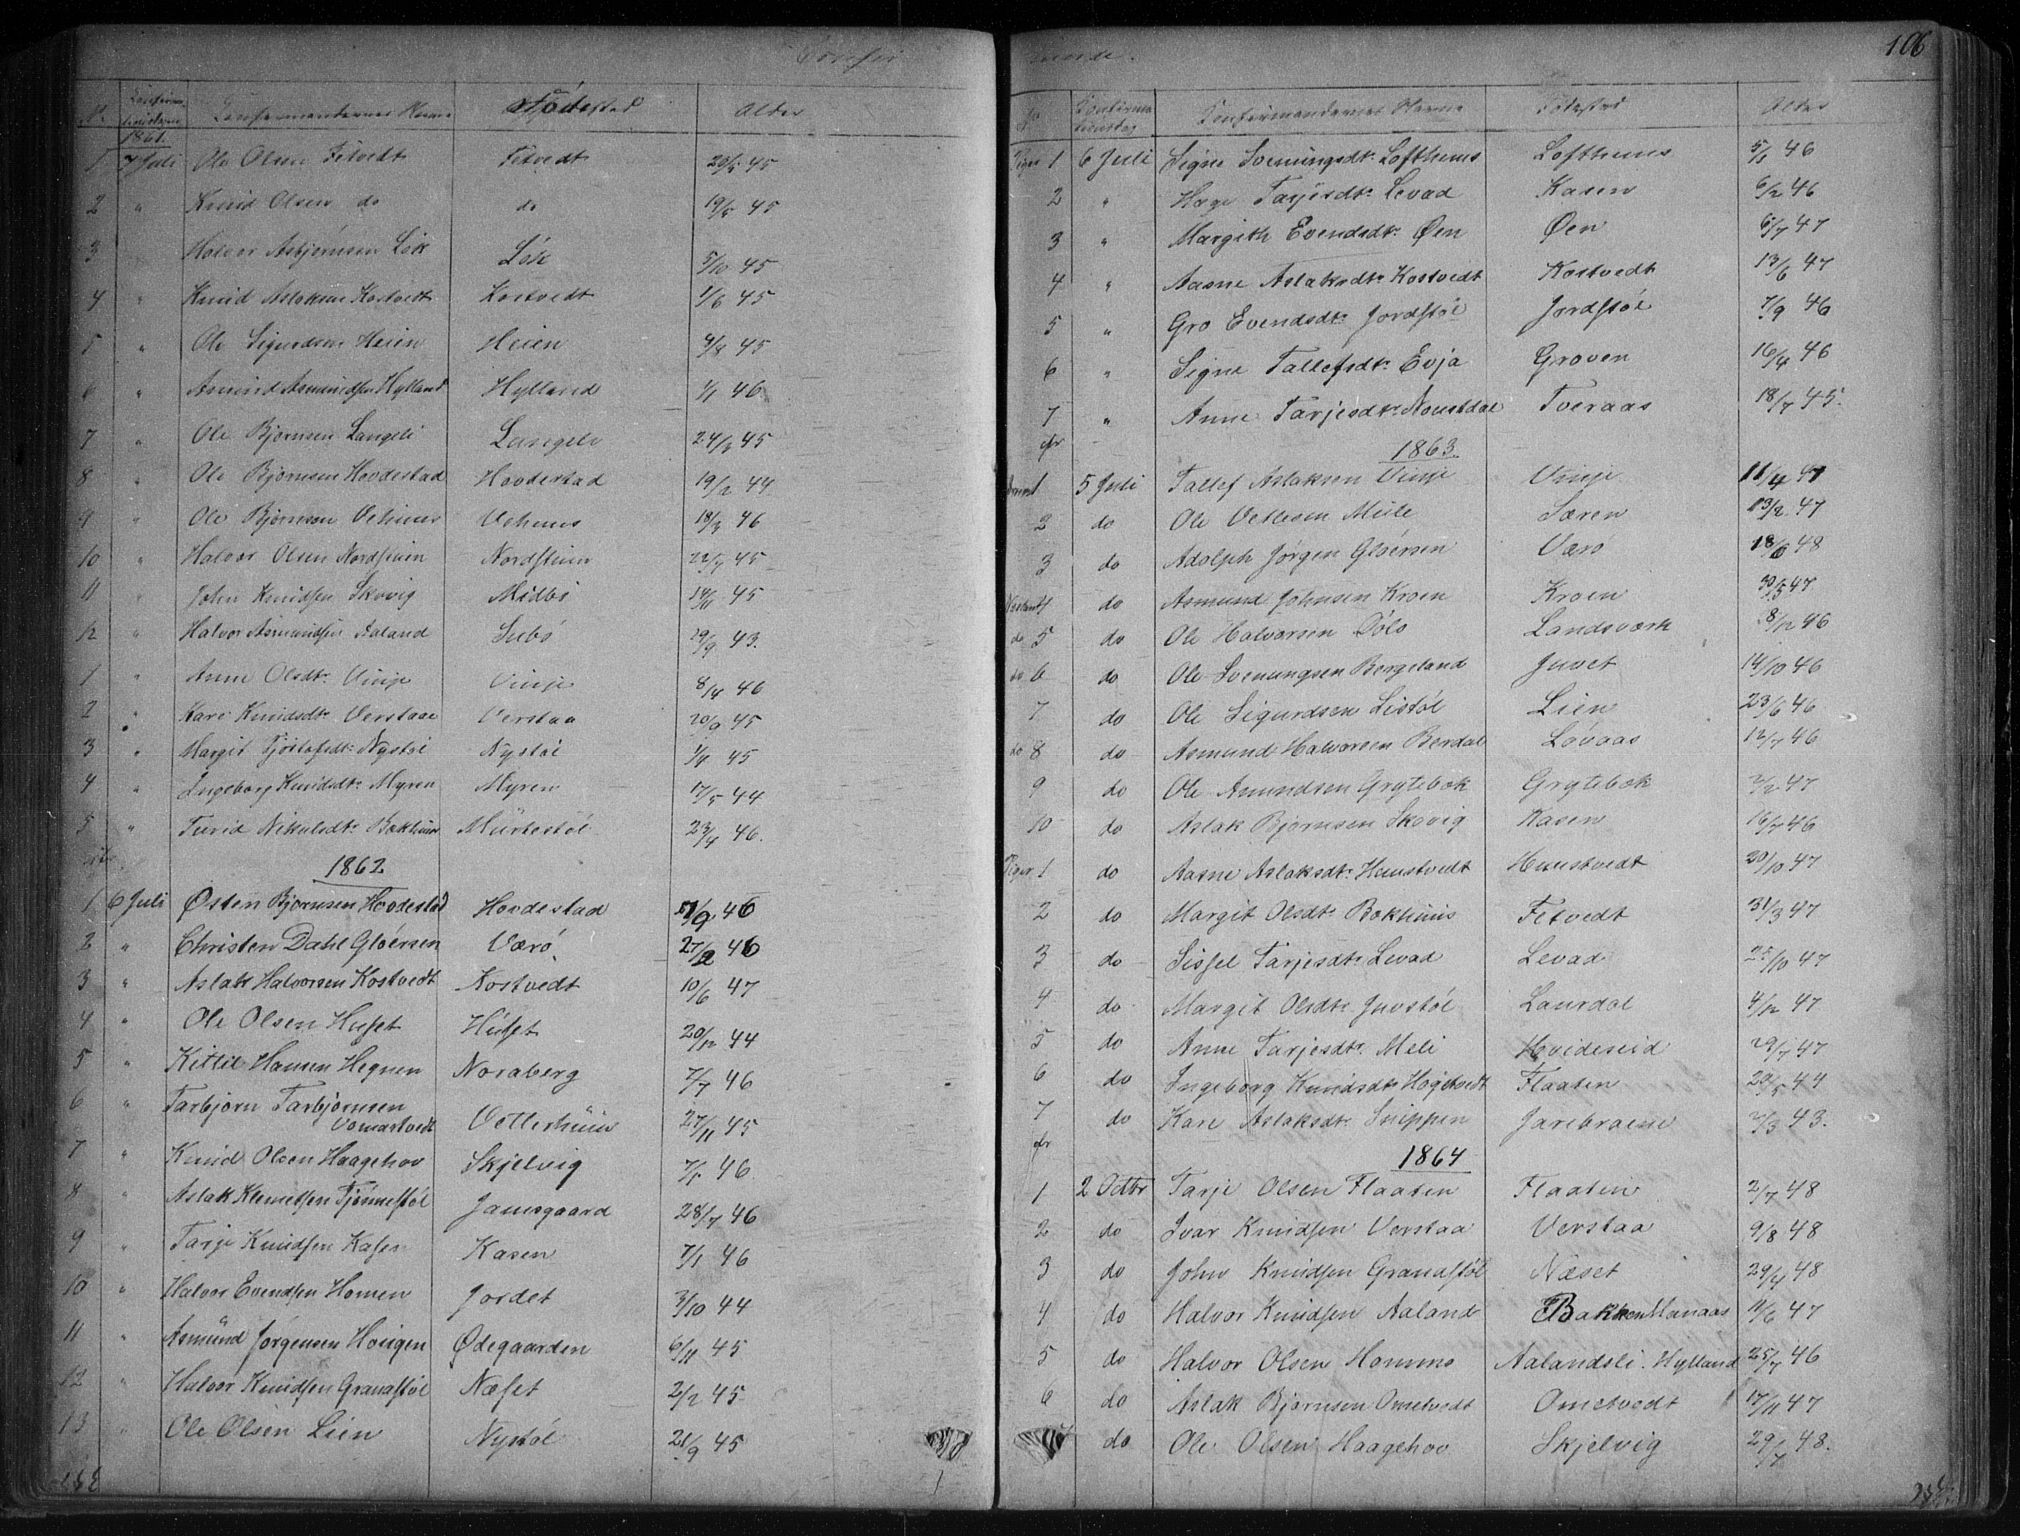 N. Confirma- tionsdagen Confirmandernes Navne Fødested Alder
1861.
1 7 Juli Ole Olsen Fitvedt Fitvedt 20/5 45
2 " Knud Olsen do do 19/5 45
3 " Halvor Asbjørnsen Løk Løk 5/10 45
4 " Knud Aslaksen Kostvedt Kostvedt 1/6 45
5 " Ole Sigurdsen Heien Heien 9/8 45
6 " Amund Asmundsen Hylland Hylland 1/1 46
7 " Ole Bjørnsen Langeli Langeli 24/3 45
8 " Ole Bjørnsen Hovdestad Hovdestad 19/2 44
9 " Ole Bjørnsen Vehuus Vehuus 18/3 46
10 " Halvor Olsen Nordstuen Nordstuen 22/7 45
11 " John Knudsen Skovig Midbø 14/11 45
12 " Halvor Asmundsen Aaland Subø 29/9 43.
1 " Anne Olsdtr Vinje Vinje 8/4 46
2 " Kari Knudsdtr Verstaae Verstaa 20/9 45
3 " Margit Tjøstofsdtr Nystøl Nystøl 1/4 45
4 " Ingeborg Knudsdtr Myren Myren 17/5 44
5 " Turid Nikulsdtr Bakhuus Murtestøl 23/4 46.
1862
1 6 Juli Østen Bjørnsen Hovdestad Hovdestad 11/9 46
2 " Christen Dahl Gløersen Værø 27/2 46
3 " Aslak Halvorsen Kostvedt Kostvedt 10/6 47
4 " Ole Olsen Huset Huset 20/12 44
5 " Kittil Hansen Hegnen Noraberg 7/7 46
6 " Tarbjørn Tarbjørnsen
Vomartvedt Vetterhuus 27/11 45
7 " Knud Olsen Haagehov Skjelvig 7/5 46
8 " Aslak Klemetsen Tjønnestøl Jamsgaard 28/7 46
9 " Tarje Knudsen Kasen Kasen 7/1 46
10 " Halvor Evendsen Homen Jordet 3/10 44
11 " Asmund Jørgensen Hougen Ødegaarden 6/11 45
12 " Halvor Knudsen Granastøl Næset 2/2 45
13 " Ole Olsen Lien Nystøl 21/9 45
106
No Confirma- tionsdag Confirmandernes Navne Fødested Alder
Piger 1 6 Juli Signe Svenungsdtr Lofthuus Lofthuus 5/1 46
2 " Hæge Tarjesdtr Levad Kasen 6/2 46
3 " Margith Evendsdtr Øen Øen 6/7 47
4 " Aasne Aslaksdtr Kostvedt Kostvedt 13/6 47
5 " Gro Evendsdtr Jordstøl Jordstøl 7/9 46
6 " Signe Tallefsdtr Evja Groven 16/4 46
7 " Anne Tarjesdtr Noustdal Tveraas 18/7 45.
1863.
1 5 Juli Tallef Aslaksen Vinje Vinje 11/4 47
2 do Ole Vetlesen Mule Særen 13/2 47
3 do Adolph Jørgen Gløersen Værø 18/6 48
4 do Asmund Johnsen Kroen Kroen 30/5 47
do 5 do Ole Halvorsen Dølo Landsværk 8/12 46
do 6 do Ole Svenungsen Bergeland Juvet 14/10 46
7 do Ole Sigurdsen Listøl Lien 23/6 46
do 8 do Asmund Halvorsen Berdal Løvaas 12/7 46
9 do Ole Amundsen Grytebæk Grytebæk 2/2 47
10 do Aslak Bjørnsen Skovig Kasen 16/7 46
Piger 1 do Aasne Aslaksdtr Huustvedt Huustvedt 20/10 47
2 do Margit Olsdtr Bakhuus Fitvedt 31/3 47
3 do Sissel Tarjesdtr Levad Levad 25/10 47
4 do Margit Olsdtr Juvstøl Laurdal 4/12 47
5 do Anne Tarjesdtr Meli Hvideseid 29/7 47
6 do Ingeborg Knudsdtr Hogetvedt Flaaten 20/5 44
7 do Kari Aslaksdtr Snippen Jarebraene 2/3 43.
1864
1 2 Octbr Tarje Olsen Flaaten Flaaten 2/7 48
2 do Ivar Knudsen Verstaa Verstaa 9/8 48
3 do John Knudsen Granastøl Næset 29/4 48
4 do Halvor Knudsen Aaland Bakken Manaas 11/6 47
5 do Halvor Olsen Homme Aalandsli. Hylland 25/7 46
6 do Aslak Bjørnsen Ometvedt Ometvedt 17/11 47
7 do Ole Olsen Haagehov Skjelvig 29/7 48.